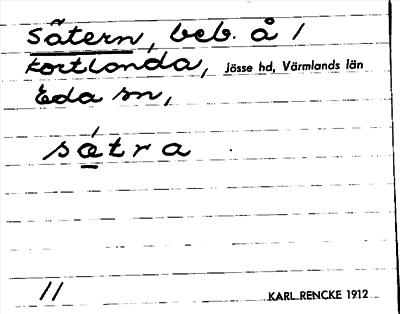 Sätern, beb. å 1
Kortlanda, Jösse hd, Värmlands län
Eda sn,
sάtra
11
KARL RENCKE 1912